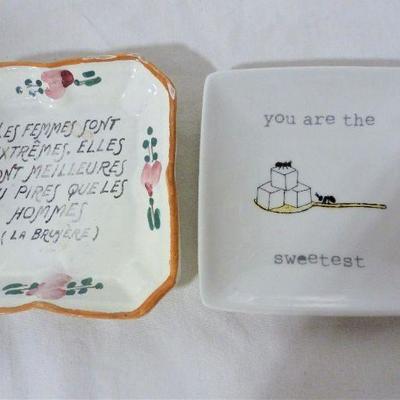 LES FEMMES SONT
EXTRÊMES. ELLES
SONT MEILLEURES
OU PIRES QUE LES
HOMMES
(LA BRUYÈRE)
you are the
sweetest